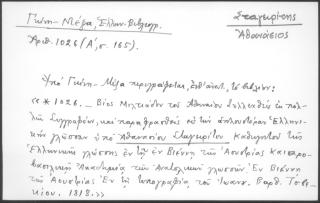 Γκίνη - Μέξα, Ελλην. Βιβλιογρ.
Σταγειρίτης
Ἀθανάσιος
Ἀριθ. 1026 (Α', σ. 165).
Ὑπὸ Γκίνη - Μέξα περιγράφεται, τὸ βιβλίον:
«* 1026. _ Βίος Μιλτιάδου τοῦ Ἀθηναίου συλλεχθεὶς ἐκ πολ-
λῶν Συγγραφέων, καὶ παραφρασθεὶς εἰς τὴν ἁπλουστέραν Ἑλληνι-
κὴν γλῶσσαν ὑπὸ Ἀθανασίου Σταγειρίτου Καθηγητοῦ τῆς
Ἑλληνικῆς γλώσσης ἐν τῇ ἐν Βιέννῃ τῆς Αουστρίας Καισαρο-
βασιλικῇ Ἀκαδημίᾳ τῶν Ἀνατολικῶν γλωσσῶν. Ἐν Βιέννῃ
τῆς Αουστρίας Ἐκ τῆς τυπογραφίας τοῦ Ἰωανν. Βαρθ. Τσβε-
κίου. 1818.»